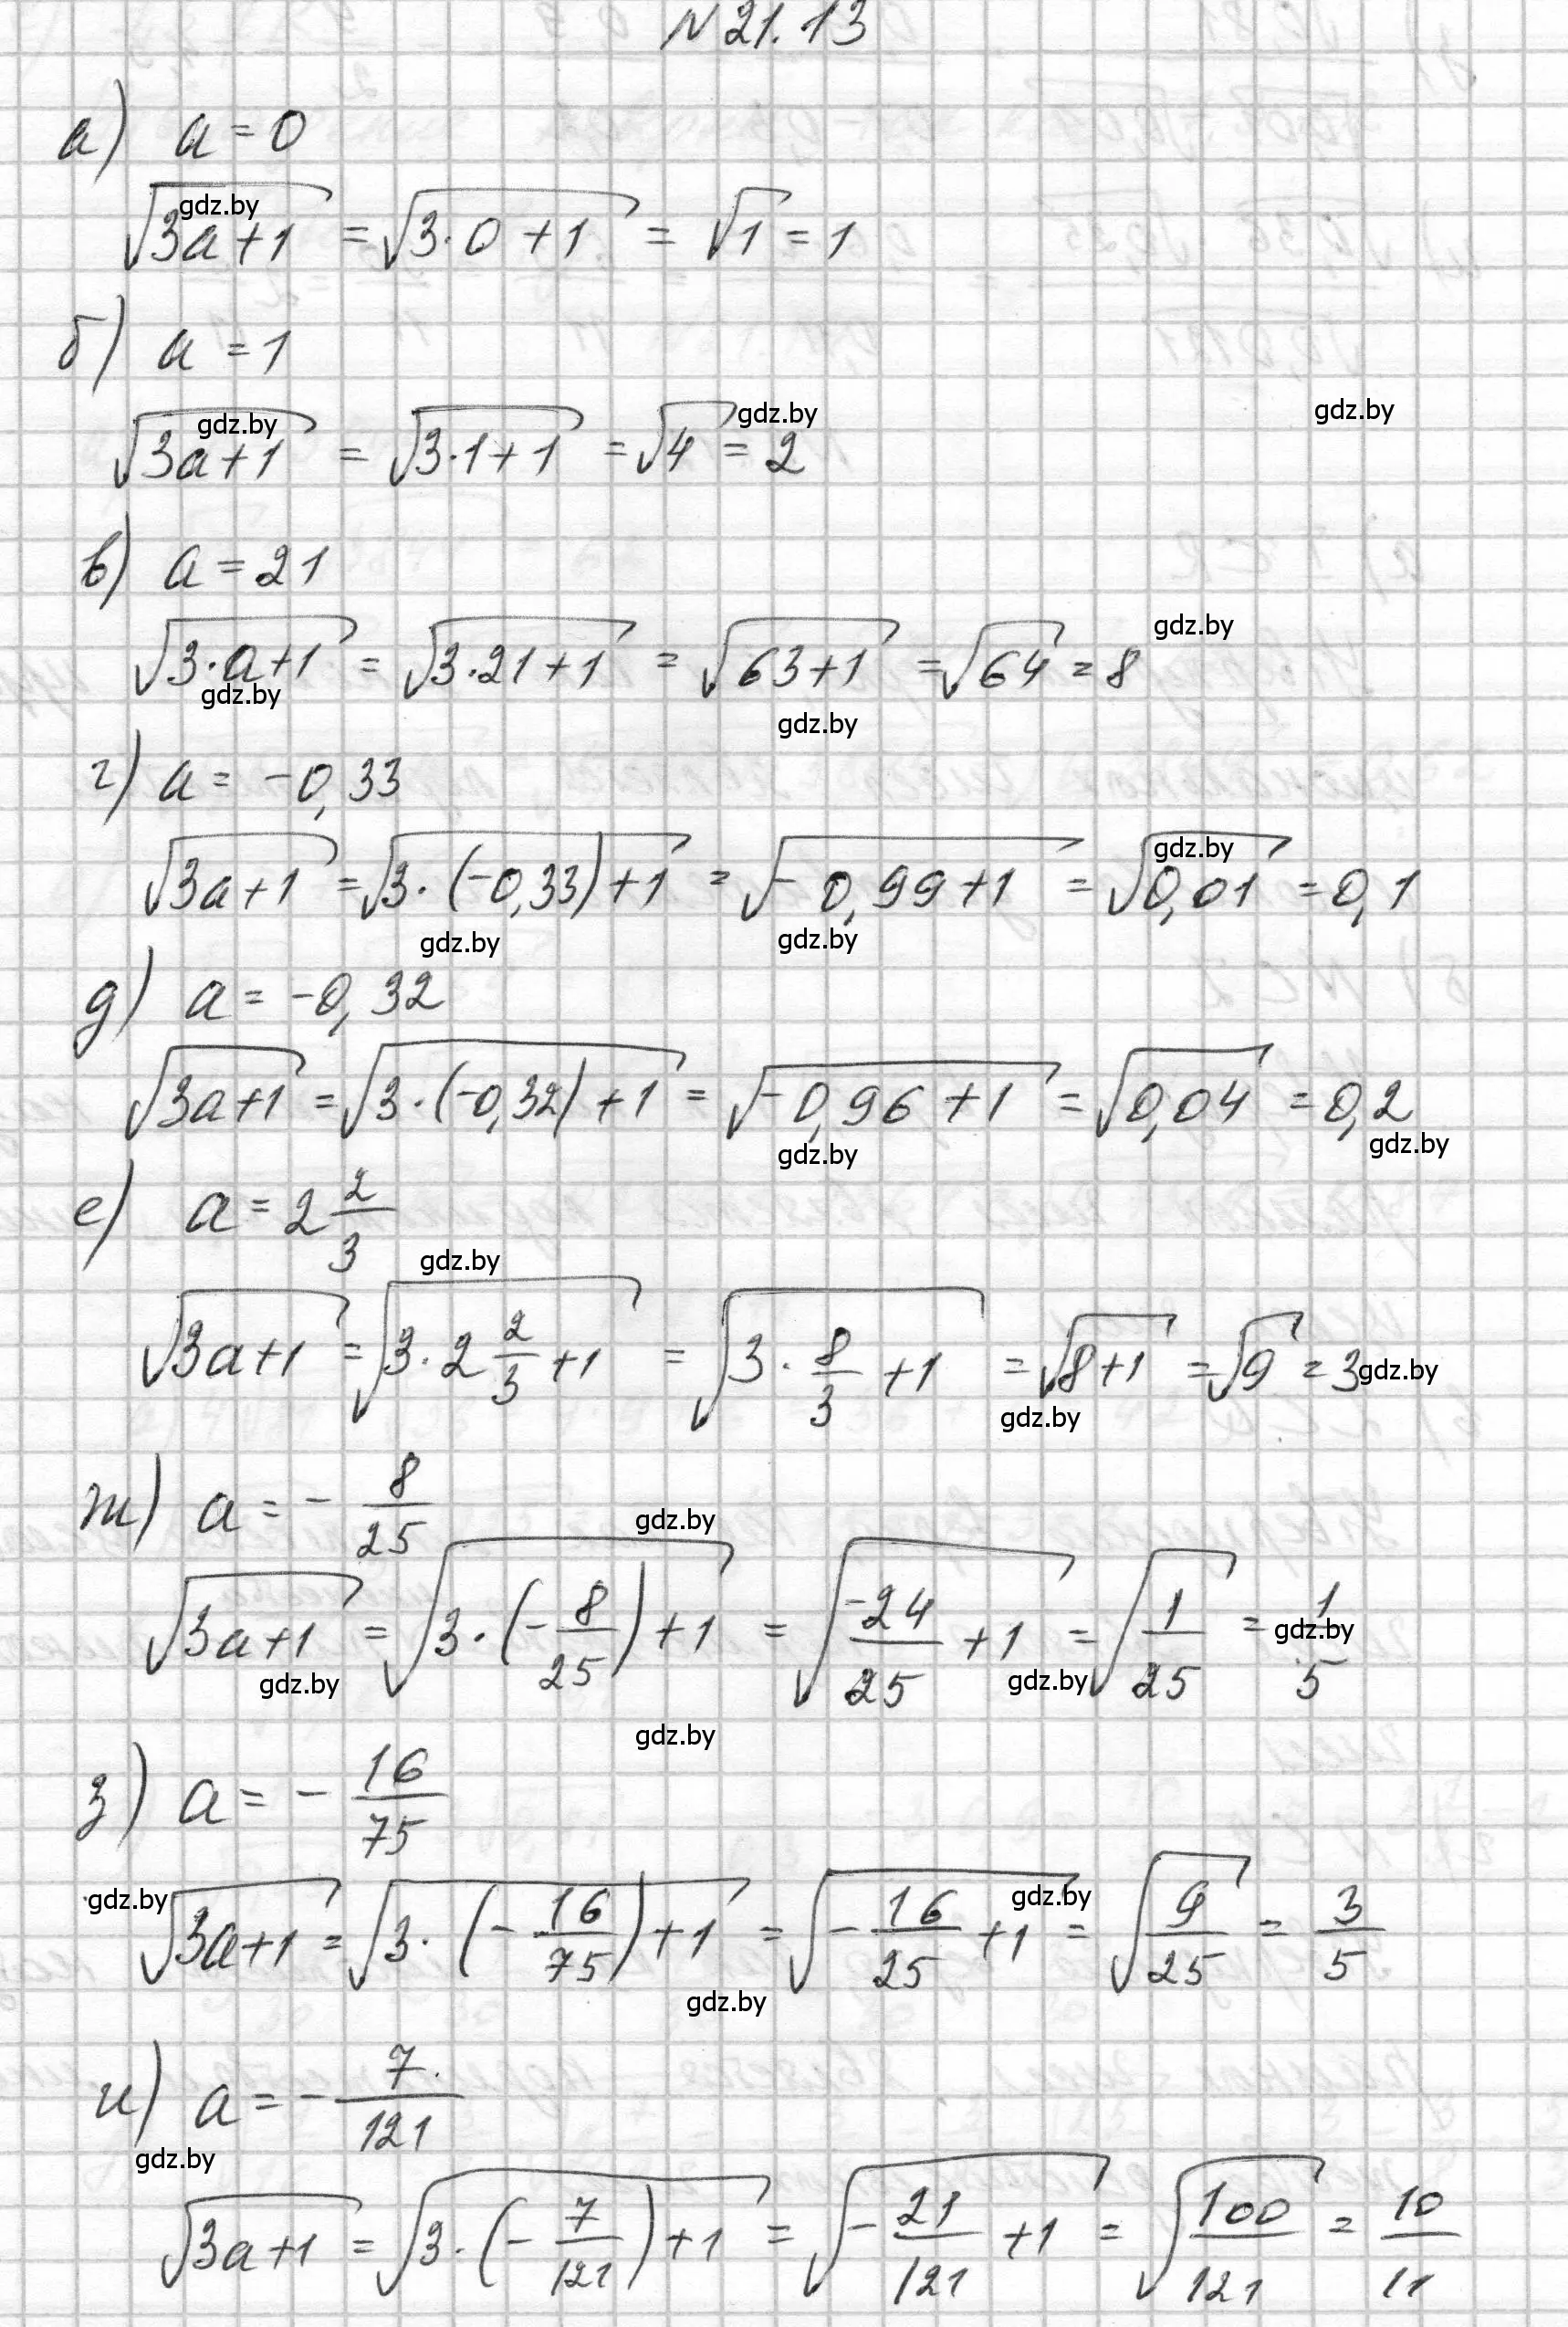 N 21.13
а) a = 0
√(3a+1) = √(3·0+1) = √1 = 1
б) a = 1
√(3a+1) = √(3·1+1) = √4 = 2
в) a = 21
√(3·a+1) = √(3·21+1) = √(63+1) = √64 = 8
г) a = -0,33
√(3a+1) = √(3·(-0,33)+1) = √(-0,99+1) = √0,01 = 0,1
д) a = -0,32
√(3a+1) = √(3·(-0,32)+1) = √(-0,96+1) = √0,04 = 0,2
е) a = 2 2/3
√(3a+1) = √(3·2 2/3+1) = √(3·8/3+1) = √(8+1) = √9 = 3
ж) a = -8/25
√(3a+1) = √(3·(-8/25)+1) = √(-24/25+1) = √(1/25) = 1/5
з) a = -16/75
√(3a+1) = √(3·(-16/75)+1) = √(-16/25+1) = √(9/25) = 3/5
и) a = -7/121
√(3a+1) = √(3·(-7/121)+1) = √(-21/121+1) = √(100/121) = 10/11
gdz.by